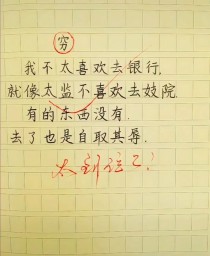 穷
我不太喜欢去银行,
就像太监不喜欢去妓院.
有的东西没有.
去了也是自取其辱.
太到位了!